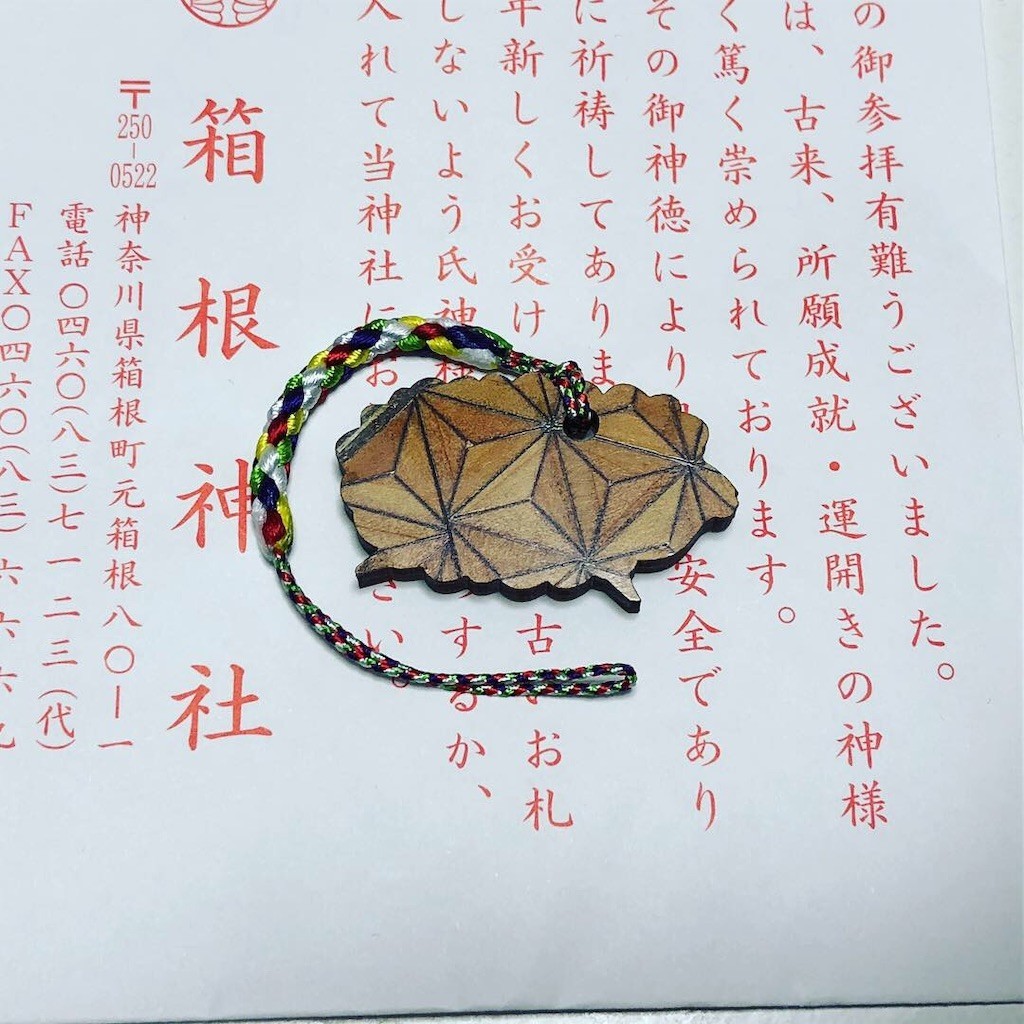 の御参拝有難うございました。
は、古来、所願成就・運開きの神様
く篤く崇められております。
その御神徳により
安全であり
に祈祷してありま
年新しくお受け
古
いお札
しないよう氏神様
するか、
入れて当神社にお
さい。
箱根神社
〒250-0522
神奈川県箱根町元箱根八〇ー一
電話〇四六〇(八三)七一二三(代)
FAX〇四六〇(八三)六六六九